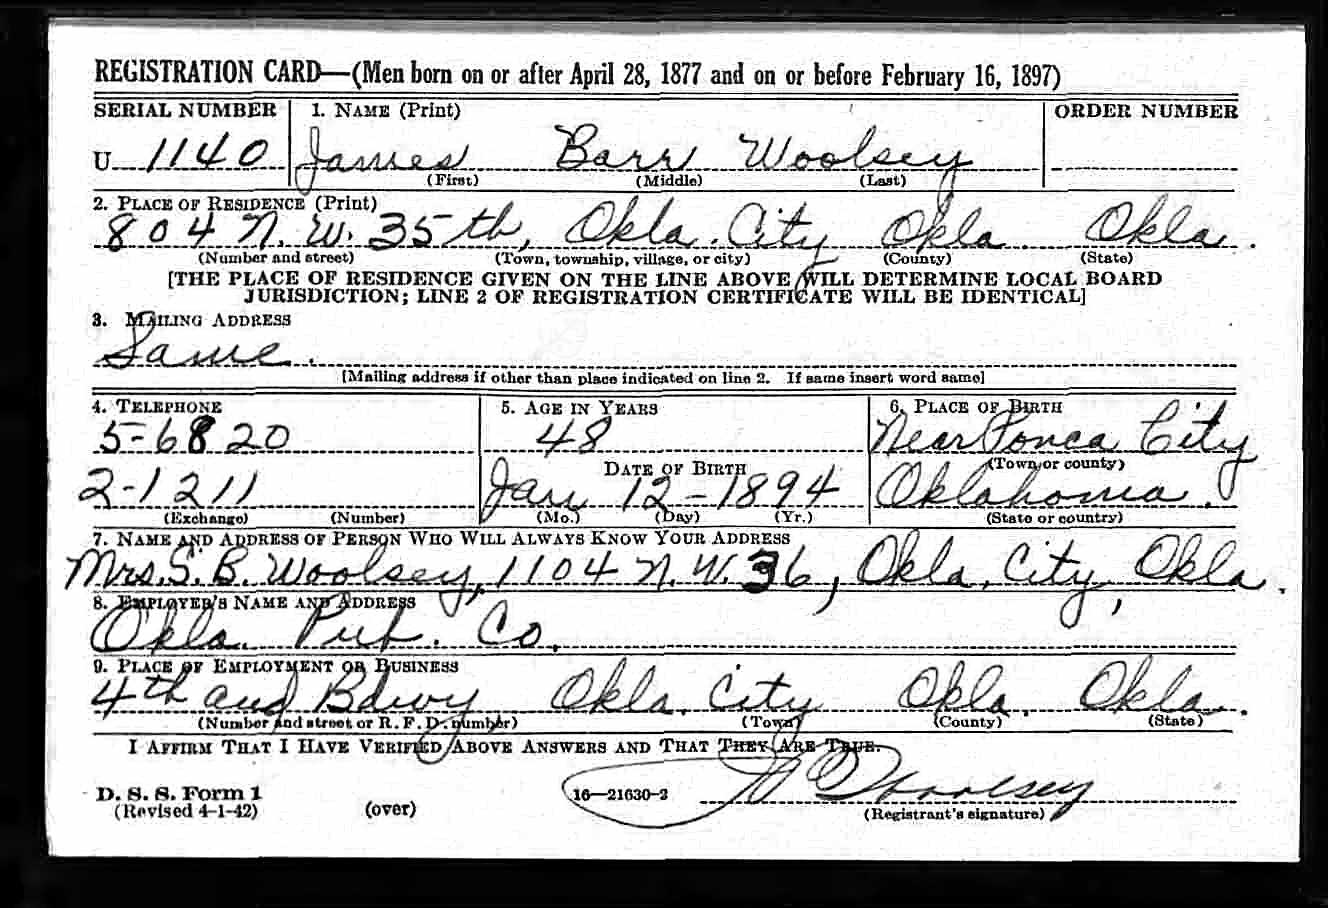 REGISTRATION CARD—(Men born on or after April 28, 1877 and on or before February 16, 1897)
SERIAL NUMBER 1. NAME (Print) ORDER NUMBER
U 1140 James Barr Woolsey
(First) (Middle) (Last)
2. PLACE OF RESIDENCE (Print)
804 N. W. 35th, Okla. City Okla. Okla.
(Number and street) (Town, township, village, or city) (County) (State)
[THE PLACE OF RESIDENCE GIVEN ON THE LINE ABOVE WILL DETERMINE LOCAL BOARD
JURISDICTION; LINE 2 OF REGISTRATION CERTIFICATE WILL BE IDENTICAL]
3. MAILING ADDRESS
Same.
[Mailing address if other than place indicated on line 2. If same insert word same]
4. TELEPHONE 5. AGE IN YEARS 6. PLACE OF BIRTH
5-6820 48 Near Ponca City
DATE OF BIRTH (Town or county)
2-1211 Jan 12-1894 Oklahoma.
(Exchange) (Number) (Mo.) (Day) (Yr.) (State or country)
7. NAME AND ADDRESS OF PERSON WHO WILL ALWAYS KNOW YOUR ADDRESS
Mrs. S. B. Woolsey, 1104 N. W. 36, Okla. City, Okla.
8. EMPLOYER'S NAME AND ADDRESS
Okla. Pub. Co.
9. PLACE OF EMPLOYMENT OR BUSINESS
4th and Bdwy Okla. City Okla. Okla.
(Number and street or R. F. D. number) (Town) (County) (State)
I AFFIRM THAT I HAVE VERIFIED ABOVE ANSWERS AND THAT THEY ARE TRUE.
D. S. S. Form 1
(Revised 4-1-42) (over) 16—21630-2 J B Woolsey
(Registrant's signature)